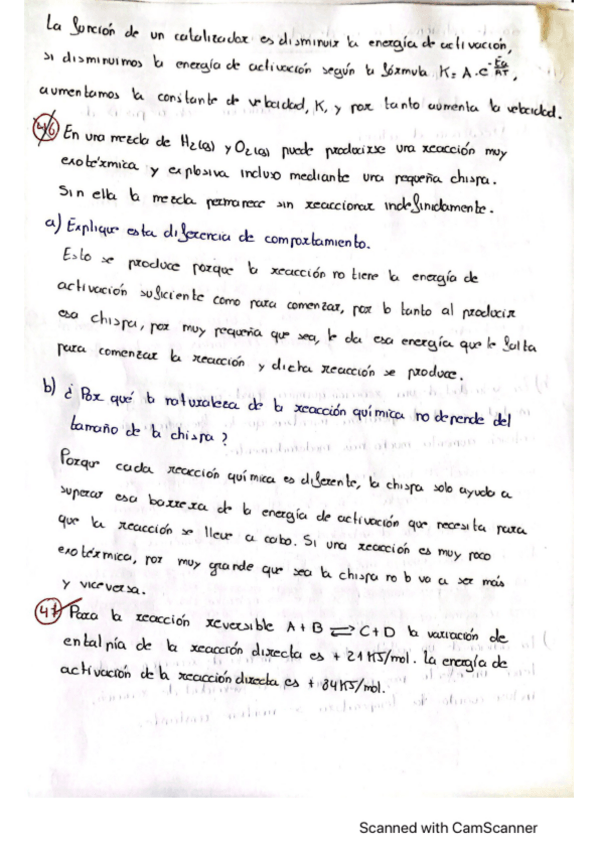 La función de un catalizador es disminuir la energía de activación,
si disminuimos la energía de activación según la fórmula K = A·e^-Ea/RT,
aumentamos la constante de velocidad, K, y por tanto aumenta la velocidad.
46 En una mezcla de H2(g) y O2(g) puede producirse una reacción muy
exotérmica y explosiva incluso mediante una pequeña chispa.
Sin ella la mezcla permanece sin reaccionar indefinidamente.
a) Explique esta diferencia de comportamiento.
Esto se produce porque la reacción no tiene la energía de
activación suficiente como para comenzar, por lo tanto al producir
esa chispa, por muy pequeña que sea, le da esa energía que le falta
para comenzar la reacción y dicha reacción se produce.
b) ¿Por qué la naturaleza de la reacción química no depende del
tamaño de la chispa?
Porqu cada reacción química es diferente, la chispa solo ayuda a
superar esa barrera de la energía de activación que necesita para
que la reacción se lleve a cabo. Si una reacción es muy poco
exotérmica, por muy grande que sea la chispa no lo va a ser más
y viceversa.
47 Para la reacción reversible A + B ⇌ C + D la variación de
entalpía de la reacción directa es + 21 KJ/mol. La energía de
activación de la reacción directa es + 84 KJ/mol.
Scanned with CamScanner